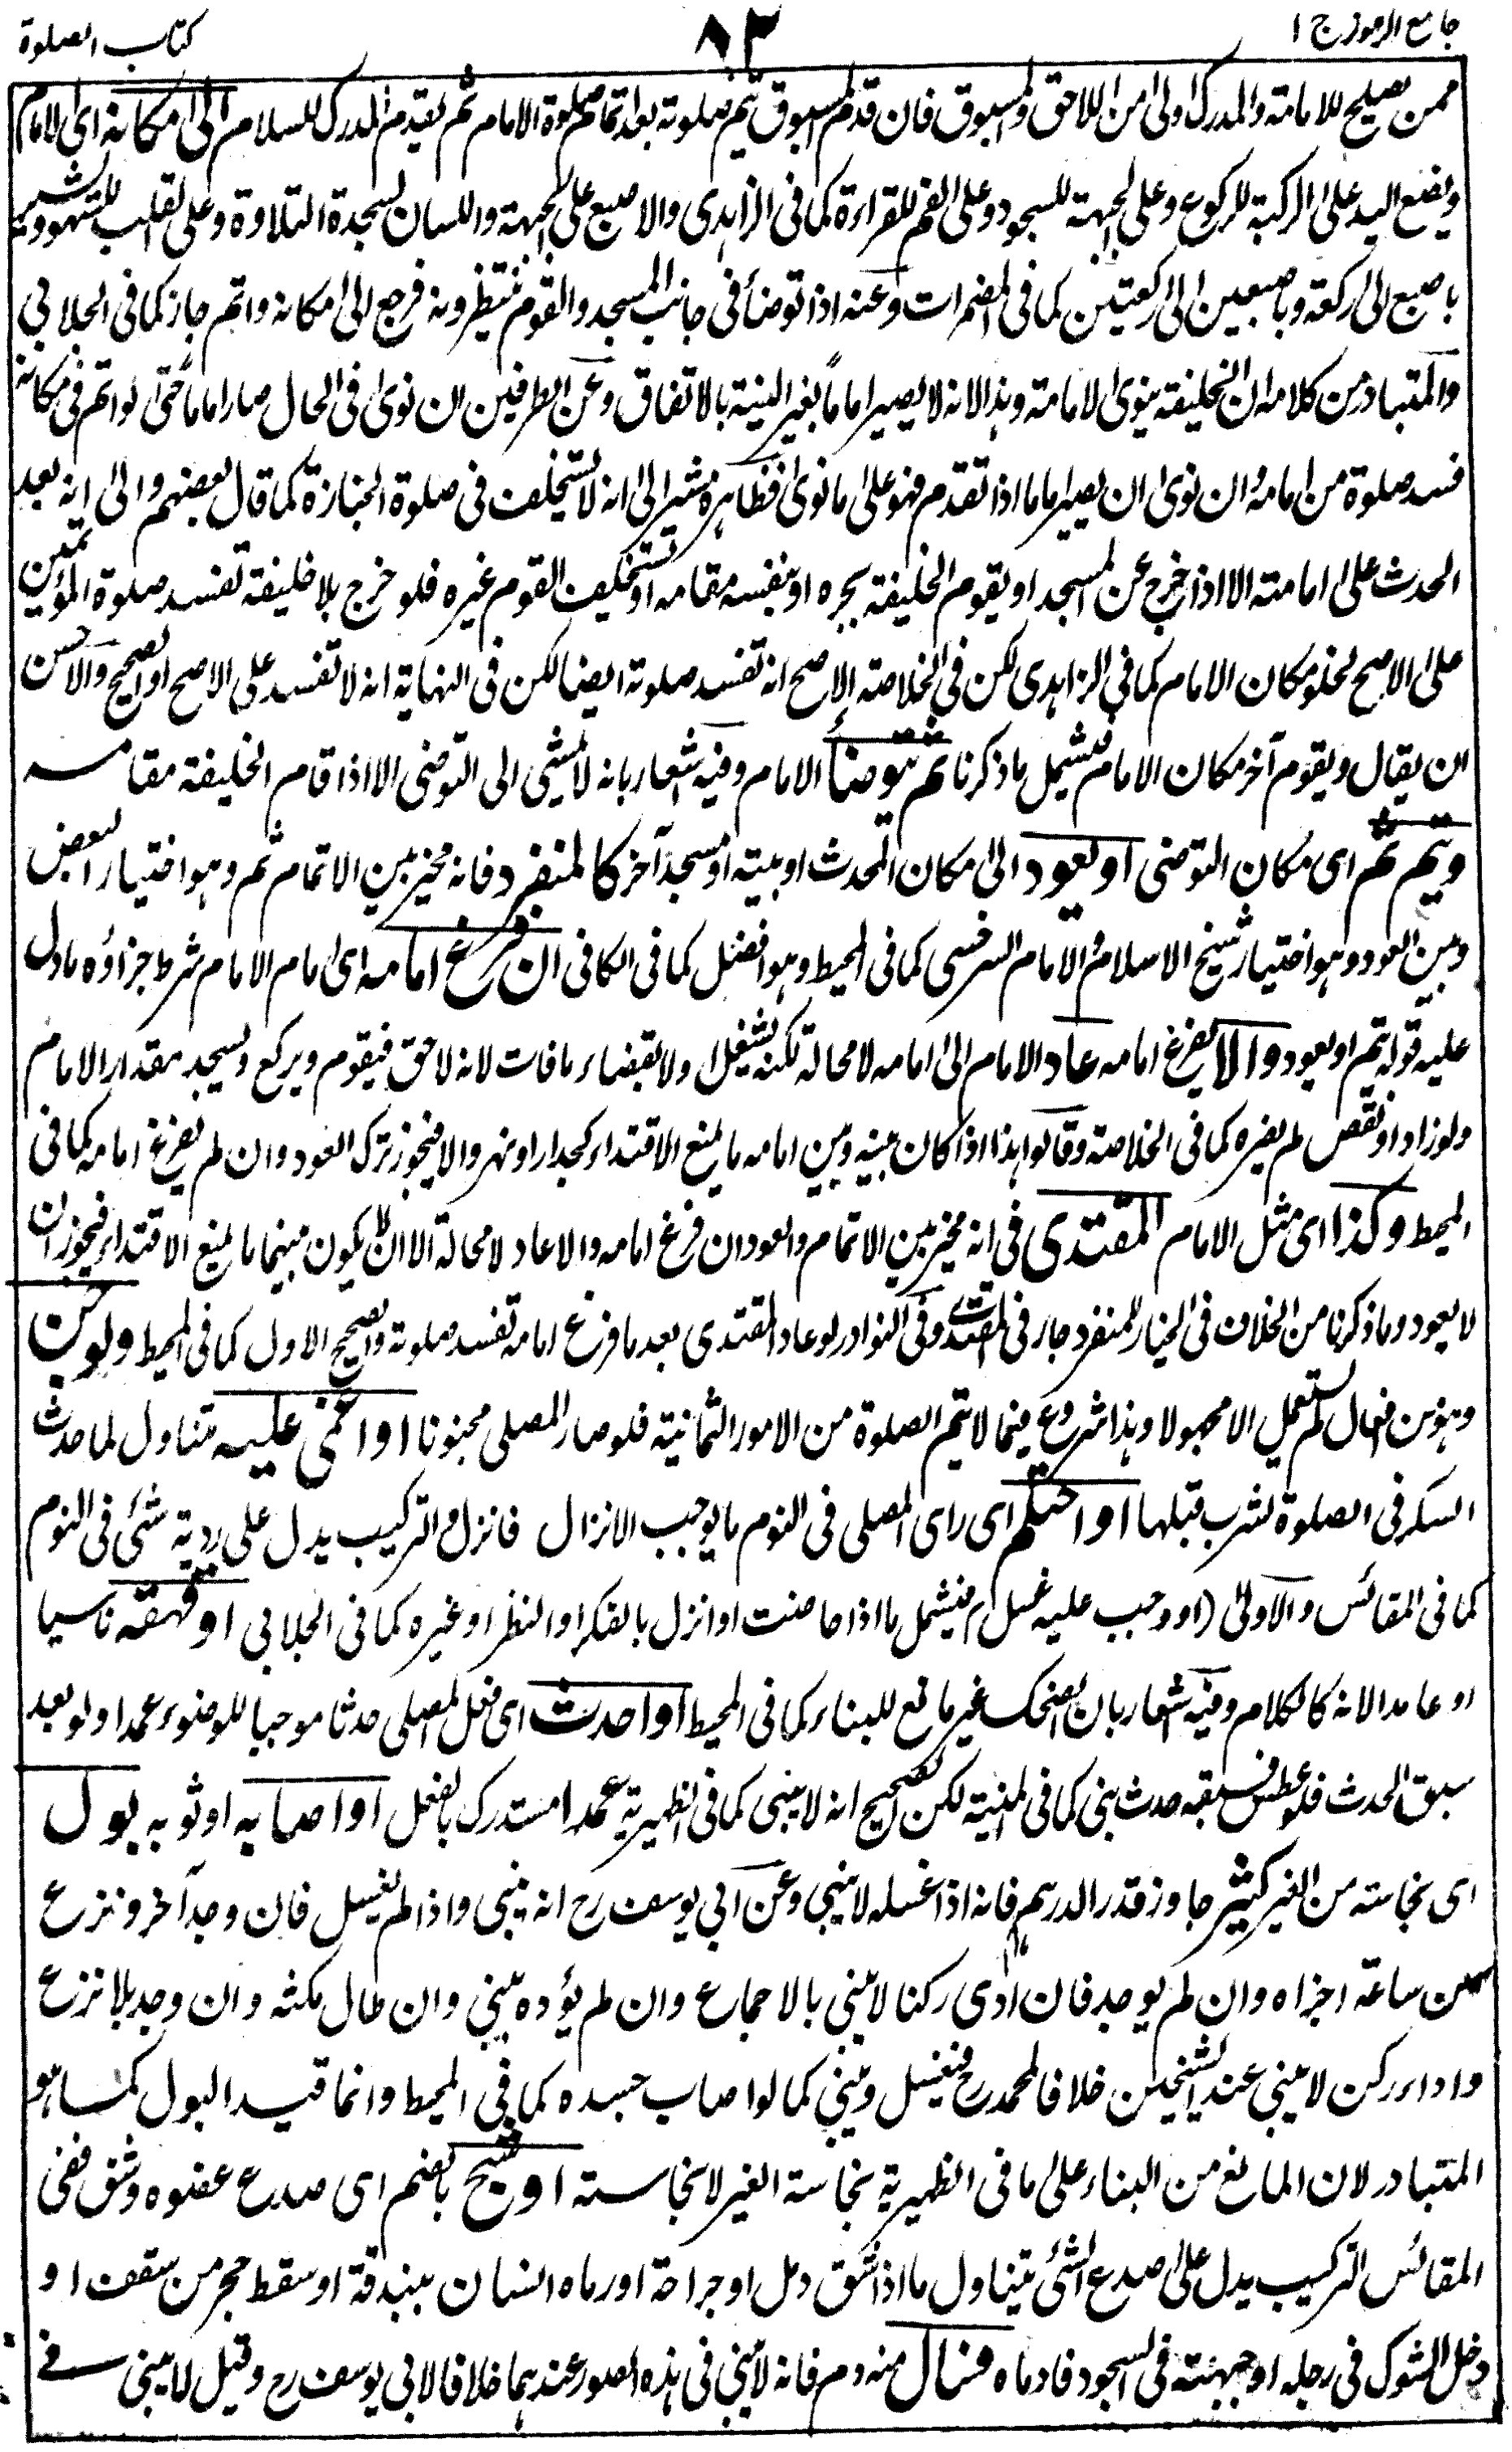 جامع الرموز ج ١
٨٣
كتاب الصلوة
ممن يصلح للامامة والمدرك اولى من اللاحق والمسبوق فان قدم المسبوق يتم صلوته بعد اتمام صلوة الامام ثم يقدم المدرك للسلام الى مكانه اى الامام
ويضع اليد على الركبة للركوع وعلى الجبهة للسجود وعلى الفم للقراءة كما فى الزاهدى والاصبع على الجبهة واللسان لسجدة التلاوة وعلى القلب للسهو ويشير
باصبع الى ركعة وباصبعين الى ركعتين كما فى المضمرات وعنه اذا توضأ فى جانب المسجد والقوم ينتظرونه فرجع الى مكانه واتم جاز كما فى الجلابى
والمتبادر من كلامه ان الخليفة ينوى الامامة وهذا لانه لا يصير اماماً بغير النية بالاتفاق وعن الطرفين ان نوى فى الحال صار اماماً حتى لو اتم فى مكانه
فسد صلوة من امامه وان نوى ان يصير اماما اذا تقدم فهو على ما نوى فظاهره مشير الى انه لا يستخلف فى صلوة الجنازة كما قال بعضهم والى انه بعد
الحدث على امامته الا اذا خرج عن المسجد او يقوم الخليفة بجره او بنفسه مقامه او يستخلف القوم غيره فلو خرج بلا خليفة تفسد صلوة المؤتمين
على الاصح لخلو مكان الامام كما فى الزاهدى لكن فى الخلاصة الاصح انه تفسد صلوته ايضا لكن فى النهاية انه لا تفسد على الاصح او الصحيح والاحسن
ان يقال ويقوم آخر مكان الامام فيشمل ما ذكرنا ثم توضأ الامام وفيه اشعار بانه لا يمشى الى التوضى الا اذا قام الخليفة مقامه
ويتم ثم اى مكان التوضى او يعود الى مكان الحدث او بيته او مسجد آخر كالمنفرد فانه مخير بين الاتمام ثم وهو اختيار البعض
وبين العود وهو اختيار شيخ الاسلام والامام السرخسى كما فى المحيط وهو افضل كما فى الكافى ان فرغ امامه اى امام الامام شرط جزاؤه ما دل
عليه قوله يتم او يعود والا يفرغ امامه عاد الامام الى امامه لا محالة لكنه يشتغل اولا بقضاء ما فات لانه لاحق فيقوم ويركع ويسجد مقدار الامام
ولو زاد او نقص لم يضره كما فى الخلاصة وقالوا هذا اذا كان بينه وبين امامه ما يمنع الاقتداء كجدار او نهر والا فيجوز ترك العود وان لم يفرغ امامه كما فى
المحيط وكذا اى مثل الامام المقتدى فى انه مخير بين الاتمام والعود ان فرغ امامه والا عاد لا محالة الا ان لا يكون بينهما ما يمنع الاقتداء فيجوز ان
لا يعود وما ذكرنا من الخلاف فى الخيار للمنفرد جار فى المقتدى وفى النوادر لو عاد المقتدى بعد ما فرغ امامه تفسد صلوته والصحيح الاول كما فى المحيط ولو جن
وهو من افعال لم تستعمل الا مجهولا وهذا شروع فيما لا يتم الصلوة من الامور الثمانية فلو صار المصلى مجنونا او اغمى عليه متناول لما حدث
السكر فى الصلوة لشرب قبلها او احتلم اى راى المصلى فى النوم ما يوجب الانزال فانزل والتركيب يدل على روية شئ فى النوم
كما فى المقائس والاولى (او وجب عليه غسل) فيشمل ما اذا حاضت او انزل بالفكر او النظر او غيره كما فى الجلابى او قهقه ناسيا
او عامدا لانه كالكلام وفيه اشعار بان الضحك غير مانع للبناء كما فى المحيط او احدث اى فعل المصلى حدثا موجبا للوضوء عمدا ولو بعد
سبق الحدث فلو عطس فسبقه حدث بنى كما فى المنية لكن الصحيح انه لا يبنى كما فى الظهيرية عمدا مستدرك بالفعل او اصابه او ثوبه بول
اى نجاسة من الغير كثير جاوز قدر الدرهم فانه اذا غسله لا يبنى وعن ابى يوسف رح انه يبنى واذا لم يغسل فان وجد آخر ونزع
من ساعته اجزاه وان لم يوجد فان ادى ركنا لا يبنى بالاجماع وان لم يؤده يبنى وان طال مكثه وان وجد بلا نزع
واداء ركن لا يبنى عند الشيخين خلافا لمحمد رح فيغسل ويبنى كما لو اصاب جسده كما فى المحيط وانما قيد البول كما هو
المتبادر لان المانع من البناء على ما فى الظهيرية نجاسة الغير لا نجاسته او شج بالضم اى صدع عضوه وشق ففى
المقائس التركيب يدل على صدع الشئ يتناول ما اذا شق دمل او جراحة او رماه انسان ببندقة او سقط حجر من سقف او
دخل الشوك فى رجله او جبهته فى السجود فادماه فسال منه دم فانه لا يبنى فى هذه الصور عندهما خلافا لابى يوسف رح وقيل لا يبنى فى